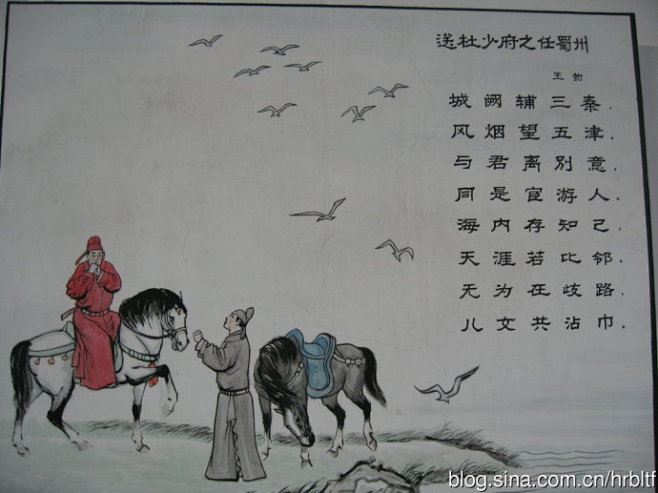 送杜少府之任蜀州
王勃
城阙辅三秦.
风烟望五津.
与君离别意.
同是宦游人.
海内存知己.
天涯若比邻.
无为在歧路.
儿女共沾巾.
blog.sina.com.cn/hrbltf